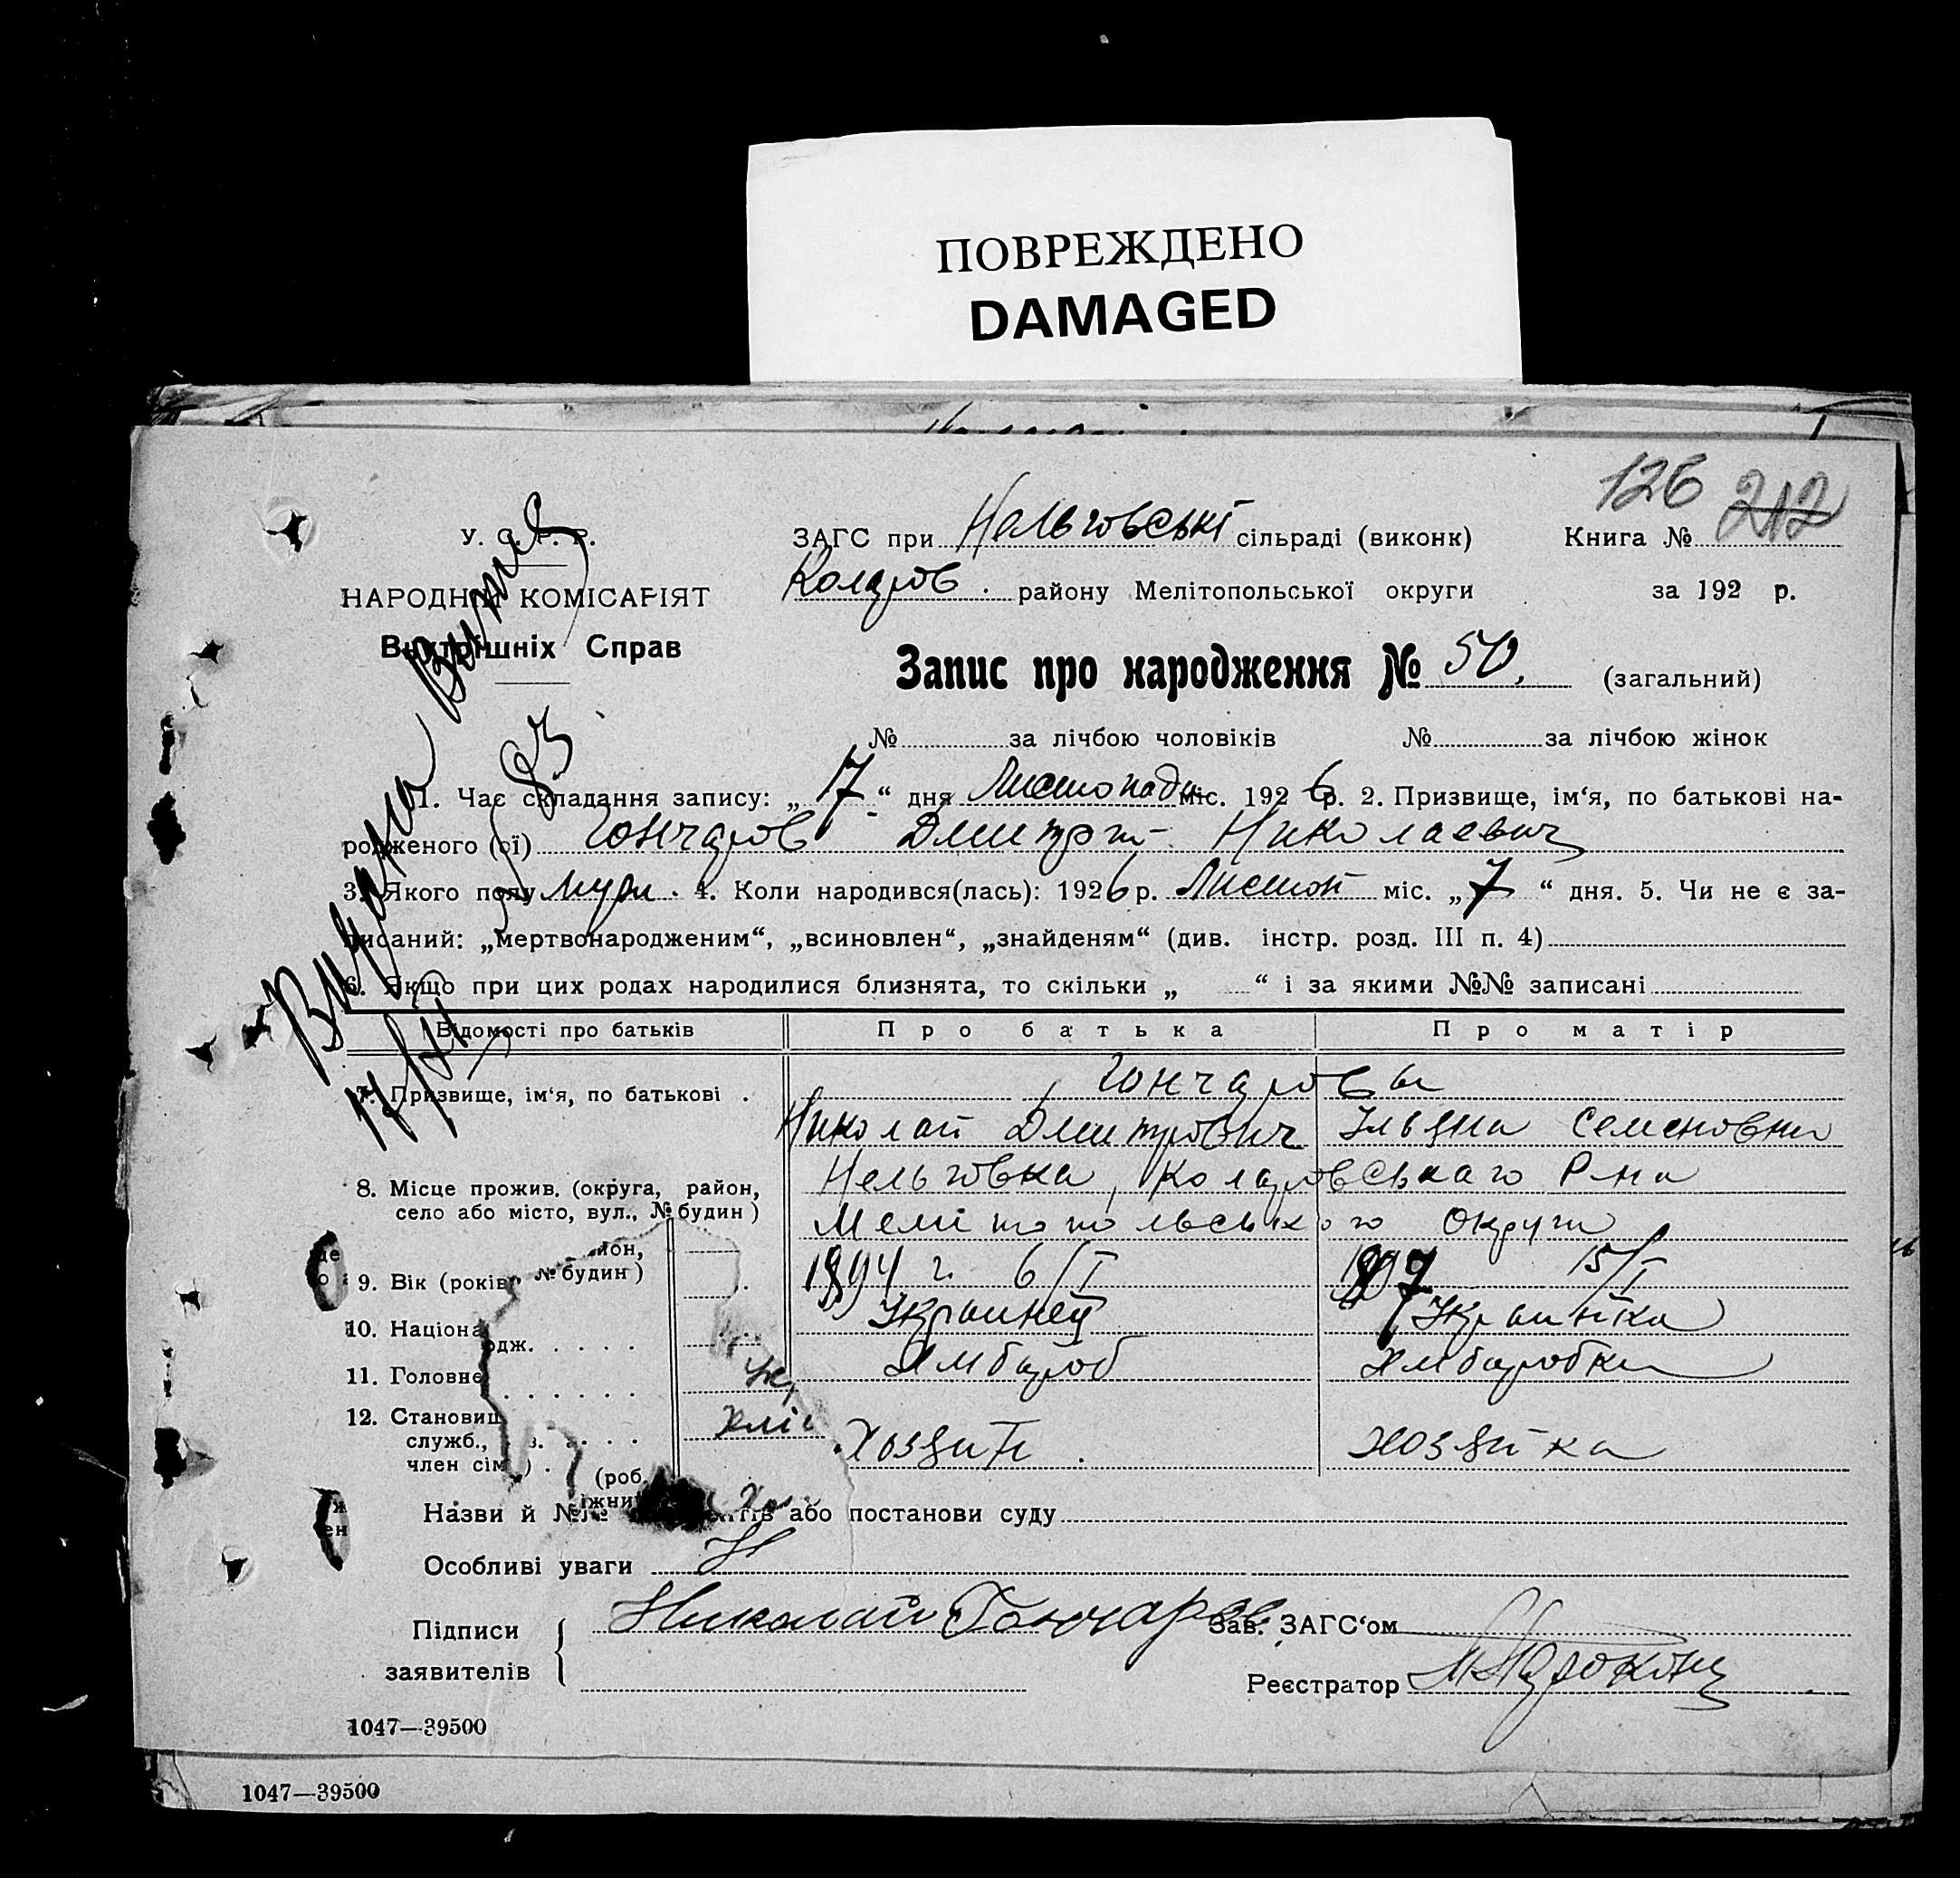 ПОВРЕЖДЕНО
DAMAGED
126 212
У. С. Р. Р.
НАРОДНІЙ КОМІСАРІЯТ
Внутрішніх Справ
ЗАГС при Нельговські сільраді (виконк) Книга №
Коларов. району Мелітопольської округи за 192 р.
Запис про народження № 50. (загальний)
№ за лічбою чоловіків № за лічбою жінок
Видана
1. Час складання запису: „17“ дня Листопада міс. 1926 р. 2. Призвище, ім‘я, по батькові на-
родженого (ої) Гончаров Дмитрій Николаевич
3. Якого полу муж. 4. Коли народився(лась): 1926 р. Листоп міс. „7“ дня. 5. Чи не є за-
писаний: „мертвонародженим“, „всиновлен“, „знайденям“ (див. інстр. розд. III п. 4)
6. Якщо при цих родах народилися близнята, то скільки „ “ і за якими №№ записані
Відомості про батьків Про батька Про матір
7. Призвище, ім‘я, по батькові . Гончаровы
Николай Дмитрович Ульяна Семеновна
8. Місце прожив. (округа, район, село або місто, вул., № будин) Нельговка, Коларовського Р-на
Мелітопольського Округи
йон,
9. Вік (років) № будин) 1894 г. 6/I 1897 15/I
10. Націона Украинец Украинка
одж.
11. Головне Хлебороб Хлеборобка
12. Становищ Хозяїн. Хозяйка
служб.,
член сім
(роб.
іжни
Назви й №№ або постанови суду
Особливі уваги
Підписи Николай Гончаров Зав. ЗАГС‘ом
заявителів
Реєстратор
1047—39500
1047—39500